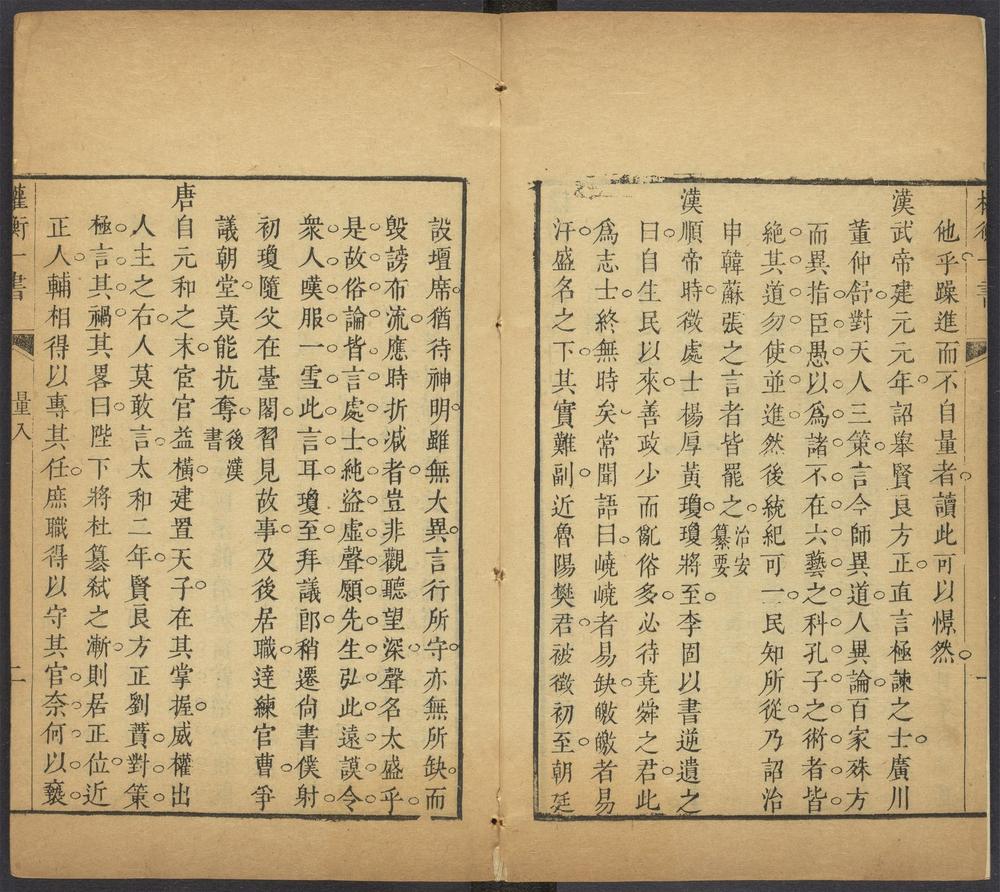 他乎躁進而不自量者讀此可以憬然
漢武帝建元元年詔舉賢良方正直言極諫之士廣川
董仲舒對天人三策言今師異道人異論百家殊方
而異指臣愚以爲諸不在六藝之科孔子之術者皆
絶其道勿使並進然後統紀可一民知所從乃詔治
申韓蘇張之言者皆罷之治安
纂要
漢順帝時徵處士楊厚黃瓊瓊將至李固以書逆遺之
曰自生民以來善政少而亂俗多必待堯舜之君此
爲志士終無時矣常聞語曰嶢嶢者易缺皦皦者易
汗盛名之下其實難副近魯陽樊君被徵初至朝廷
設壇席猶待神明雖無大異言行所守亦無所缺而
毀謗布流應時折減者豈非觀聽望深聲名太盛乎
是故俗論皆言處士純盜虛聲願先生弘此遠謨令
衆人嘆服一雪此言耳瓊至拜議郎稍遷尙書僕射
初瓊隨父在臺閣習見故事及後居職達練官曹爭
議朝堂莫能抗奪後漢
書
唐自元和之末宦官益橫建置天子在其掌握威權出
人主之右人莫敢言太和二年賢良方正劉蕡對策
極言其禍其畧曰陛下將杜簒弒之漸則居正位近
正人輔相得以專其任庶職得以守其官奈何以褻
權衡一書
量入
二